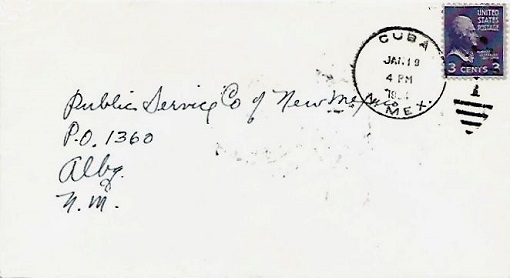 CUBA
JAN 19
4 PM
N. MEX.
UNITED
STATES
POSTAGE
3 CENTS 3
Public Service Co of New Mexico
P.O. 1360
Albq.
N.M.